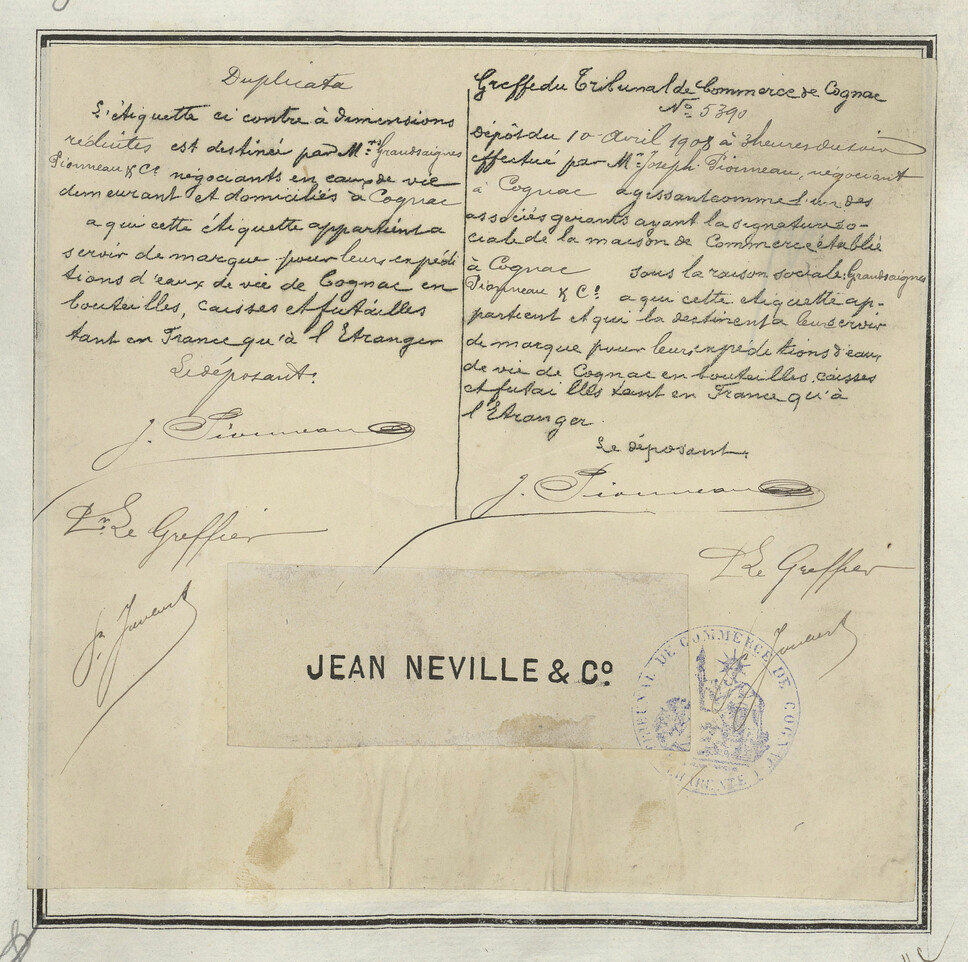 Duplicata
L'étiquette ci contre à dimensions
réduites est destinée par Mrs Grandsaignes
Pionneau & Cº négociants en eaux de vie
demeurant et domiciliés à Cognac
a qui cette étiquette appartient a
servir de marque pour leurs expédi
tions d'eaux de vie de Cognac en
bouteilles, caisses et futailles
tant en France qu'à l'Etranger
Le déposant.
J. Pionneau
Pr Le Greffier
Greffe du Tribunal de Commerce de Cognac
Nº 5390
Dépôt du 10 Avril 1908 à 3 heures du soir
effectué par Mr Joseph Pionneau, négociant
à Cognac agissant comme l'un des
associés gerants ayant la signature so-
ciale de la maison de Commerce établie
à Cognac sous la raison sociale: Grandsaignes
Pionneau & Cº a qui cette etiquette ap-
partient et qui la destinent a leur servir
de marque pour leurs expéditions d'eaux
de vie de Cognac en bouteilles, caisses
et futailles tant en France qu'à
l'Etranger.
Le déposant.
J. Pionneau
Pr Le Greffier
JEAN NEVILLE & Cº
TRIBUNAL DE COMMERCE DE COGNAC